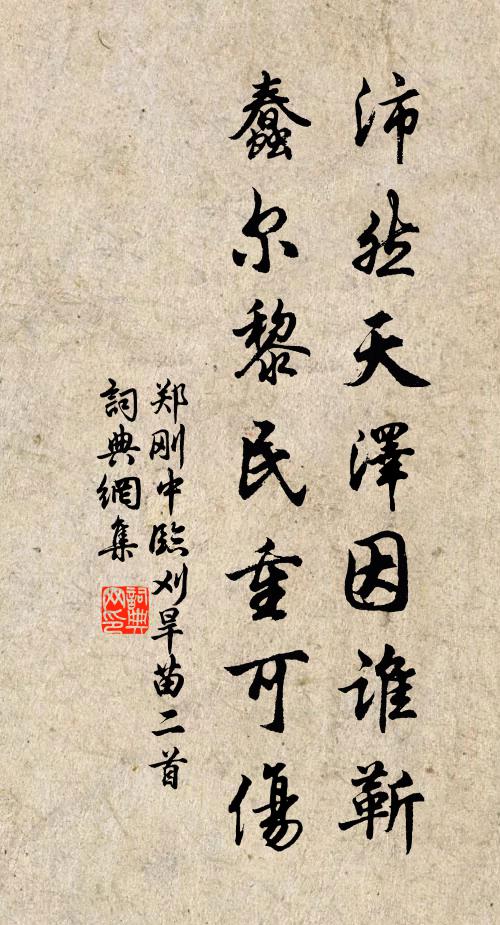 沛然天澤因谁靳
蠢尔黎民重可傷
郑刚中臨刈旱苗二首
詞典網集
詞典網印